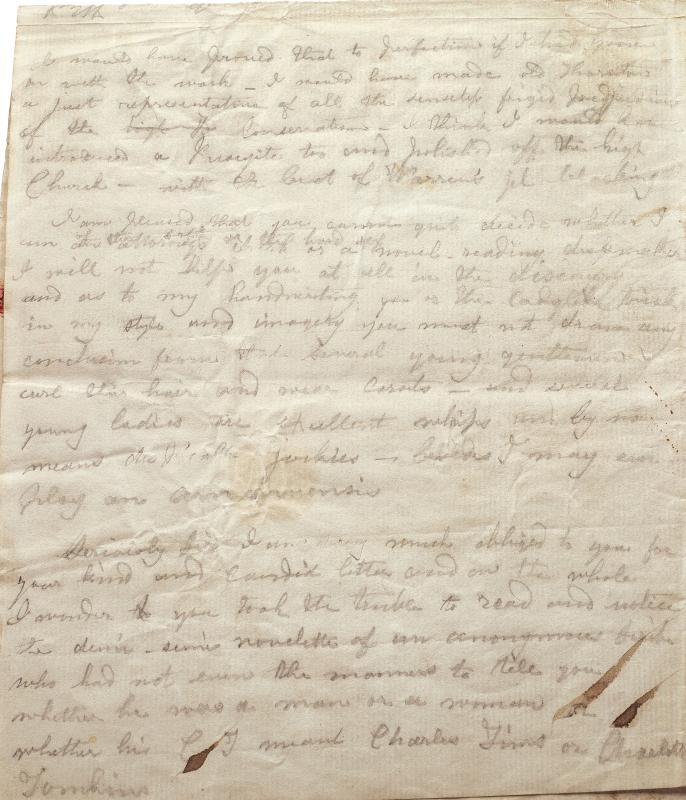 I would have proved that to perfection if I had gone
on with the work — I would have made old Thornton
a just representative of all the senseless frigid prejudices
of the high Conservatism — I think I would have
introduced a Puseyite too and polished off the high
Church — with the best of Warren's jet blacking
I am pleased that you cannot quite decide whether I
am or a novel-reading
I will not help you at all in the discovery
and as to my handwriting or the ladylike touch
in my style and imagery you must not draw any
conclusion from that Several young gentlemen
curl their hair and wear corsets — and several
young ladies are excellent whips and by no
means jockies — besides I may
employ an amanuensis
Seriously Sir I am very much obliged to you for
your kind and candid letter and on the whole
I wonder you took the trouble to read and notice
the demi-semi novelette of an anonymous
who had not even the manners to tell you
whether he was a man or a woman or
whether his C T meant Charles Tims or Charlotte
Tomkins